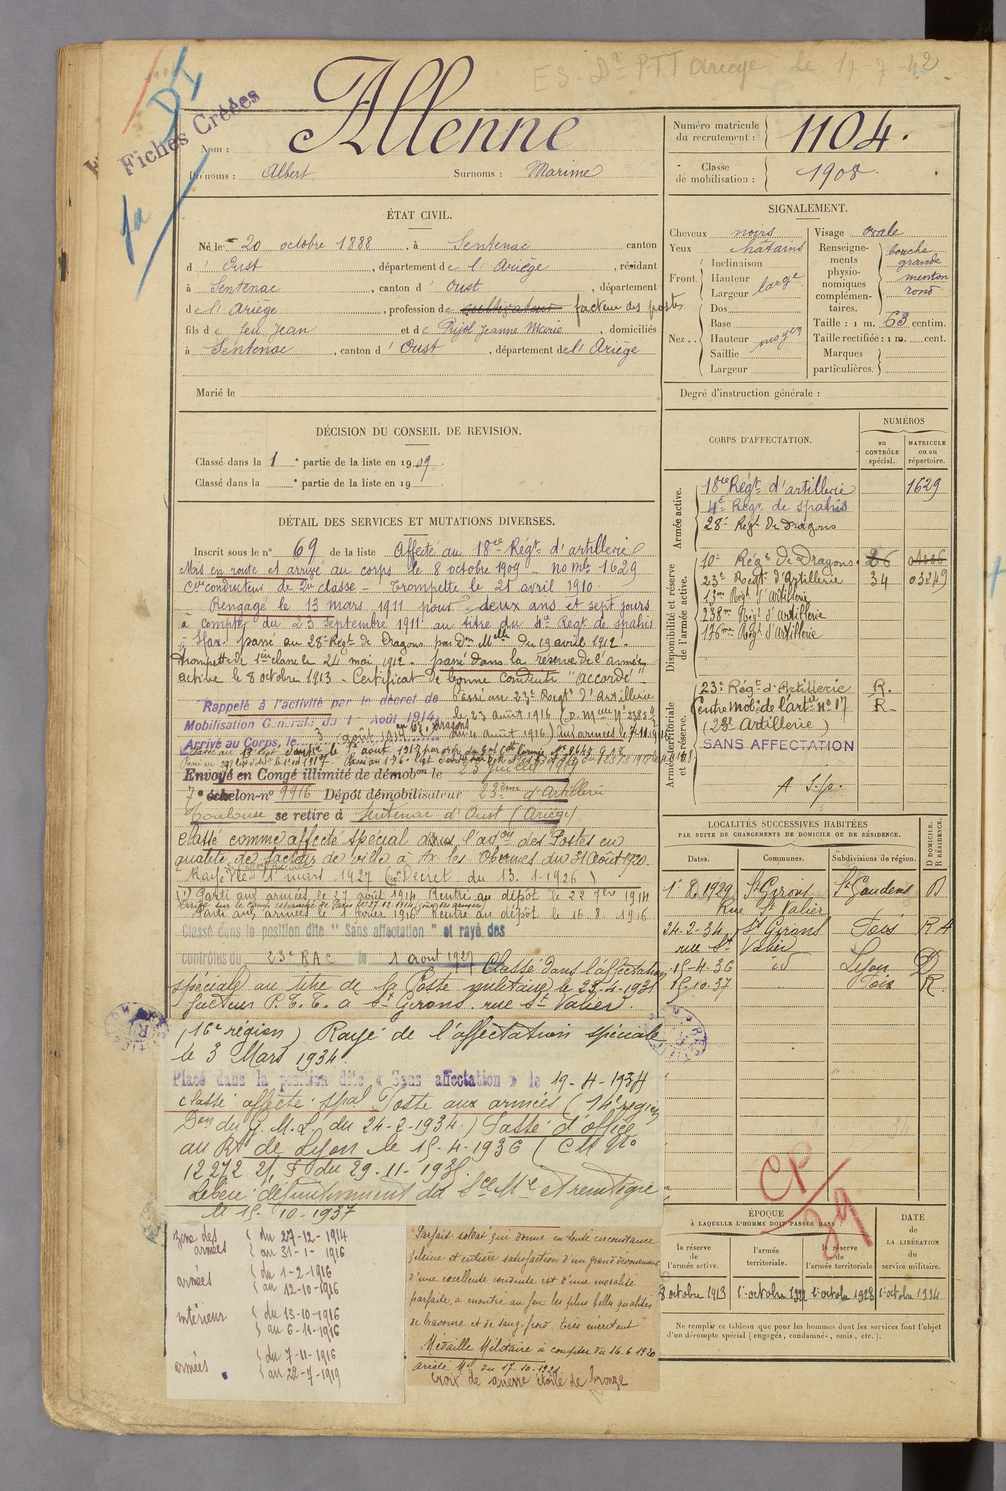 ES - Dr P.T.T Ariège le 17-7-42
Fiches Créées
Nom : Allenne
Prénoms : Albert Surnoms : Marime
Numéro matricule du recrutement : 1104.
Classe de mobilisation : 1908
ÉTAT CIVIL.
Né le 20 octobre 1888, à Sentenac canton
d' Oust, département de l'Ariège, résidant
à Sentenac, canton d'Oust, département
de l'Ariège, profession de cultivateur facteur des postes
fils de feu Jean et de Pujol Jeanne Marie, domiciliés
à Sentenac, canton d'Oust, département de l'Ariège
Marié le
SIGNALEMENT.
Cheveux noirs
Yeux châtains
Front. Inclinaison
Hauteur
Largeur large
Nez.. Dos
Base
Hauteur moyen
Saillie
Largeur
Visage ovale
Renseignements physionomiques complémentaires. bouche grande menton rond
Taille : 1 m. 63 centim.
Taille rectifiée : 1 m. cent.
Marques particulières.
Degré d'instruction générale :
DÉCISION DU CONSEIL DE REVISION.
Classé dans la 1e partie de la liste en 1909.
Classé dans la e partie de la liste en 19
DÉTAIL DES SERVICES ET MUTATIONS DIVERSES.
Inscrit sous le n° 69 de la liste Affecté au 18ce Régt d'artillerie
Mis en route et arrivé au corps le 8 octobre 1909 - no mle 1629
Cer conducteur de 2e classe - Trompette le 21 avril 1910
Rengagé le 13 mars 1911 pour deux ans et sept jours
à compter du 23 Septembre 1911 au titre du 4e Régt de spahis
à Sfax. passé au 28e Régt de Dragons par Don Melle du 19 avril 1912.
trompette de 1ère classe le 24 mai 1912 - passé dans la réserve de l'armée
active le 8 octobre 1913 - Certificat de bonne conduite "accordé"
Rappelé à l'activité par le décret de Passé au 23e Regt d'Artillerie
Mobilisation Générale du 1er Août 1914 le 23 Août 1916
Arrivé au Corps, le 3 août 1914
Envoyé en Congé illimité de démobon le 23 juillet 1919
7e échelon-n° 9916 Dépôt démobilisateur 23ème d'Artillerie
Toulouse se retire à Sentenac d'Oust (Ariège)
Classé comme affecté spécial dans l'adon des Postes en
qualité de facteur de ville à Ax les Thermes du 31 Août 1920.
Rayé le 1er mars 1927 (Décret du 13.1.1926)
(1) Parti aux armées le 27 août 1914 Rentré au dépôt le 22 7bre 1914
Parti aux armées le 1 février 1916 Rentré au dépôt le 16.8.1916
Classé dans la position dite "Sans affectation" et rayé des
contrôles du 23e RAC le 1 août 1927 Classé dans l'affectation
spéciale au titre de la Poste militaire le 23-4-1931
facteur P.T.T. à St Girons rue St Valier
(16e région) Rayé de l'affectation spéciale
le 3 Mars 1934.
Placé dans la position dite « Sans affectation » le 19-4-1934
classé affecté spal Poste aux armées (14e région
Don du G.M.L. du 24-2-1934) Passé d'office
au Rt de Lyon le 15-4-1936 (CM No
12272 2/1 F du 29-11-1935
Libéré définitivement du Sce Mre
le 15-10-1937
zone des armées du 27-12-1914 au 31-1-1916
armées du 1-2-1916 au 12-10-1916
intérieur du 13-10-1916 au 6-11-1916
armées du 7-11-1916 au 22-7-1919
"Parfait soldat qui donne en toute circonstance
pleine et entière satisfaction d'un grand dévouement
d'une excellente conduite est d'une moralité
parfaite, a montré au feu les plus belles qualités
de bravoure et de sang-froid. très méritant"
Médaille Militaire à compter du 16.6.1920
arrêté Mel du 17-10-1921
Croix de guerre étoile de bronze
CORPS D'AFFECTATION.
NUMÉROS
au CONTRÔLE spécial.
MATRICULE ou au répertoire.
Armée active.
18ce Régt d'artillerie 1629
4e Régt de spahis
28e Régt de Dragons
Disponibilité et réserve de l'armée active.
10e Régt de Dragons 26
23e Regt d'Artillerie 34 03249
13me Regt d'Artillerie
238me Régt d'artillerie
176me Régt d'artillerie
Armée territoriale et sa réserve.
23e Régt d'Artillerie R.
Centre mob. de l'artie n° 17 R.
(23e Artillerie)
SANS AFFECTATION
LOCALITÉS SUCCESSIVES HABITÉES
PAR SUITE DE CHANGEMENTS DE DOMICILE OU DE RÉSIDENCE.
Dates. Communes. Subdivisions de région. D DOMICILE, R RÉSIDENCE.
1.8.1929 St Girons St Gaudens D
Rue St Valier
24-2-34 St Girons Foix R A
rue St Valier
15-4-36 id Lyon D
15-10-37 Foix R
CP/39
ÉPOQUE
À LAQUELLE L'HOMME DOIT PASSER DANS :
la réserve de l'armée active.
l'armée territoriale.
la réserve de l'armée territoriale
DATE de LA LIBÉRATION du service militaire.
8 octobre 1913 1er octobre 1922 1er octobre 1928 1er octobre 1934
Ne remplir ce tableau que pour les hommes dont les services font l'objet
d'un décompte spécial (engagés, condamnés, omis, etc.).